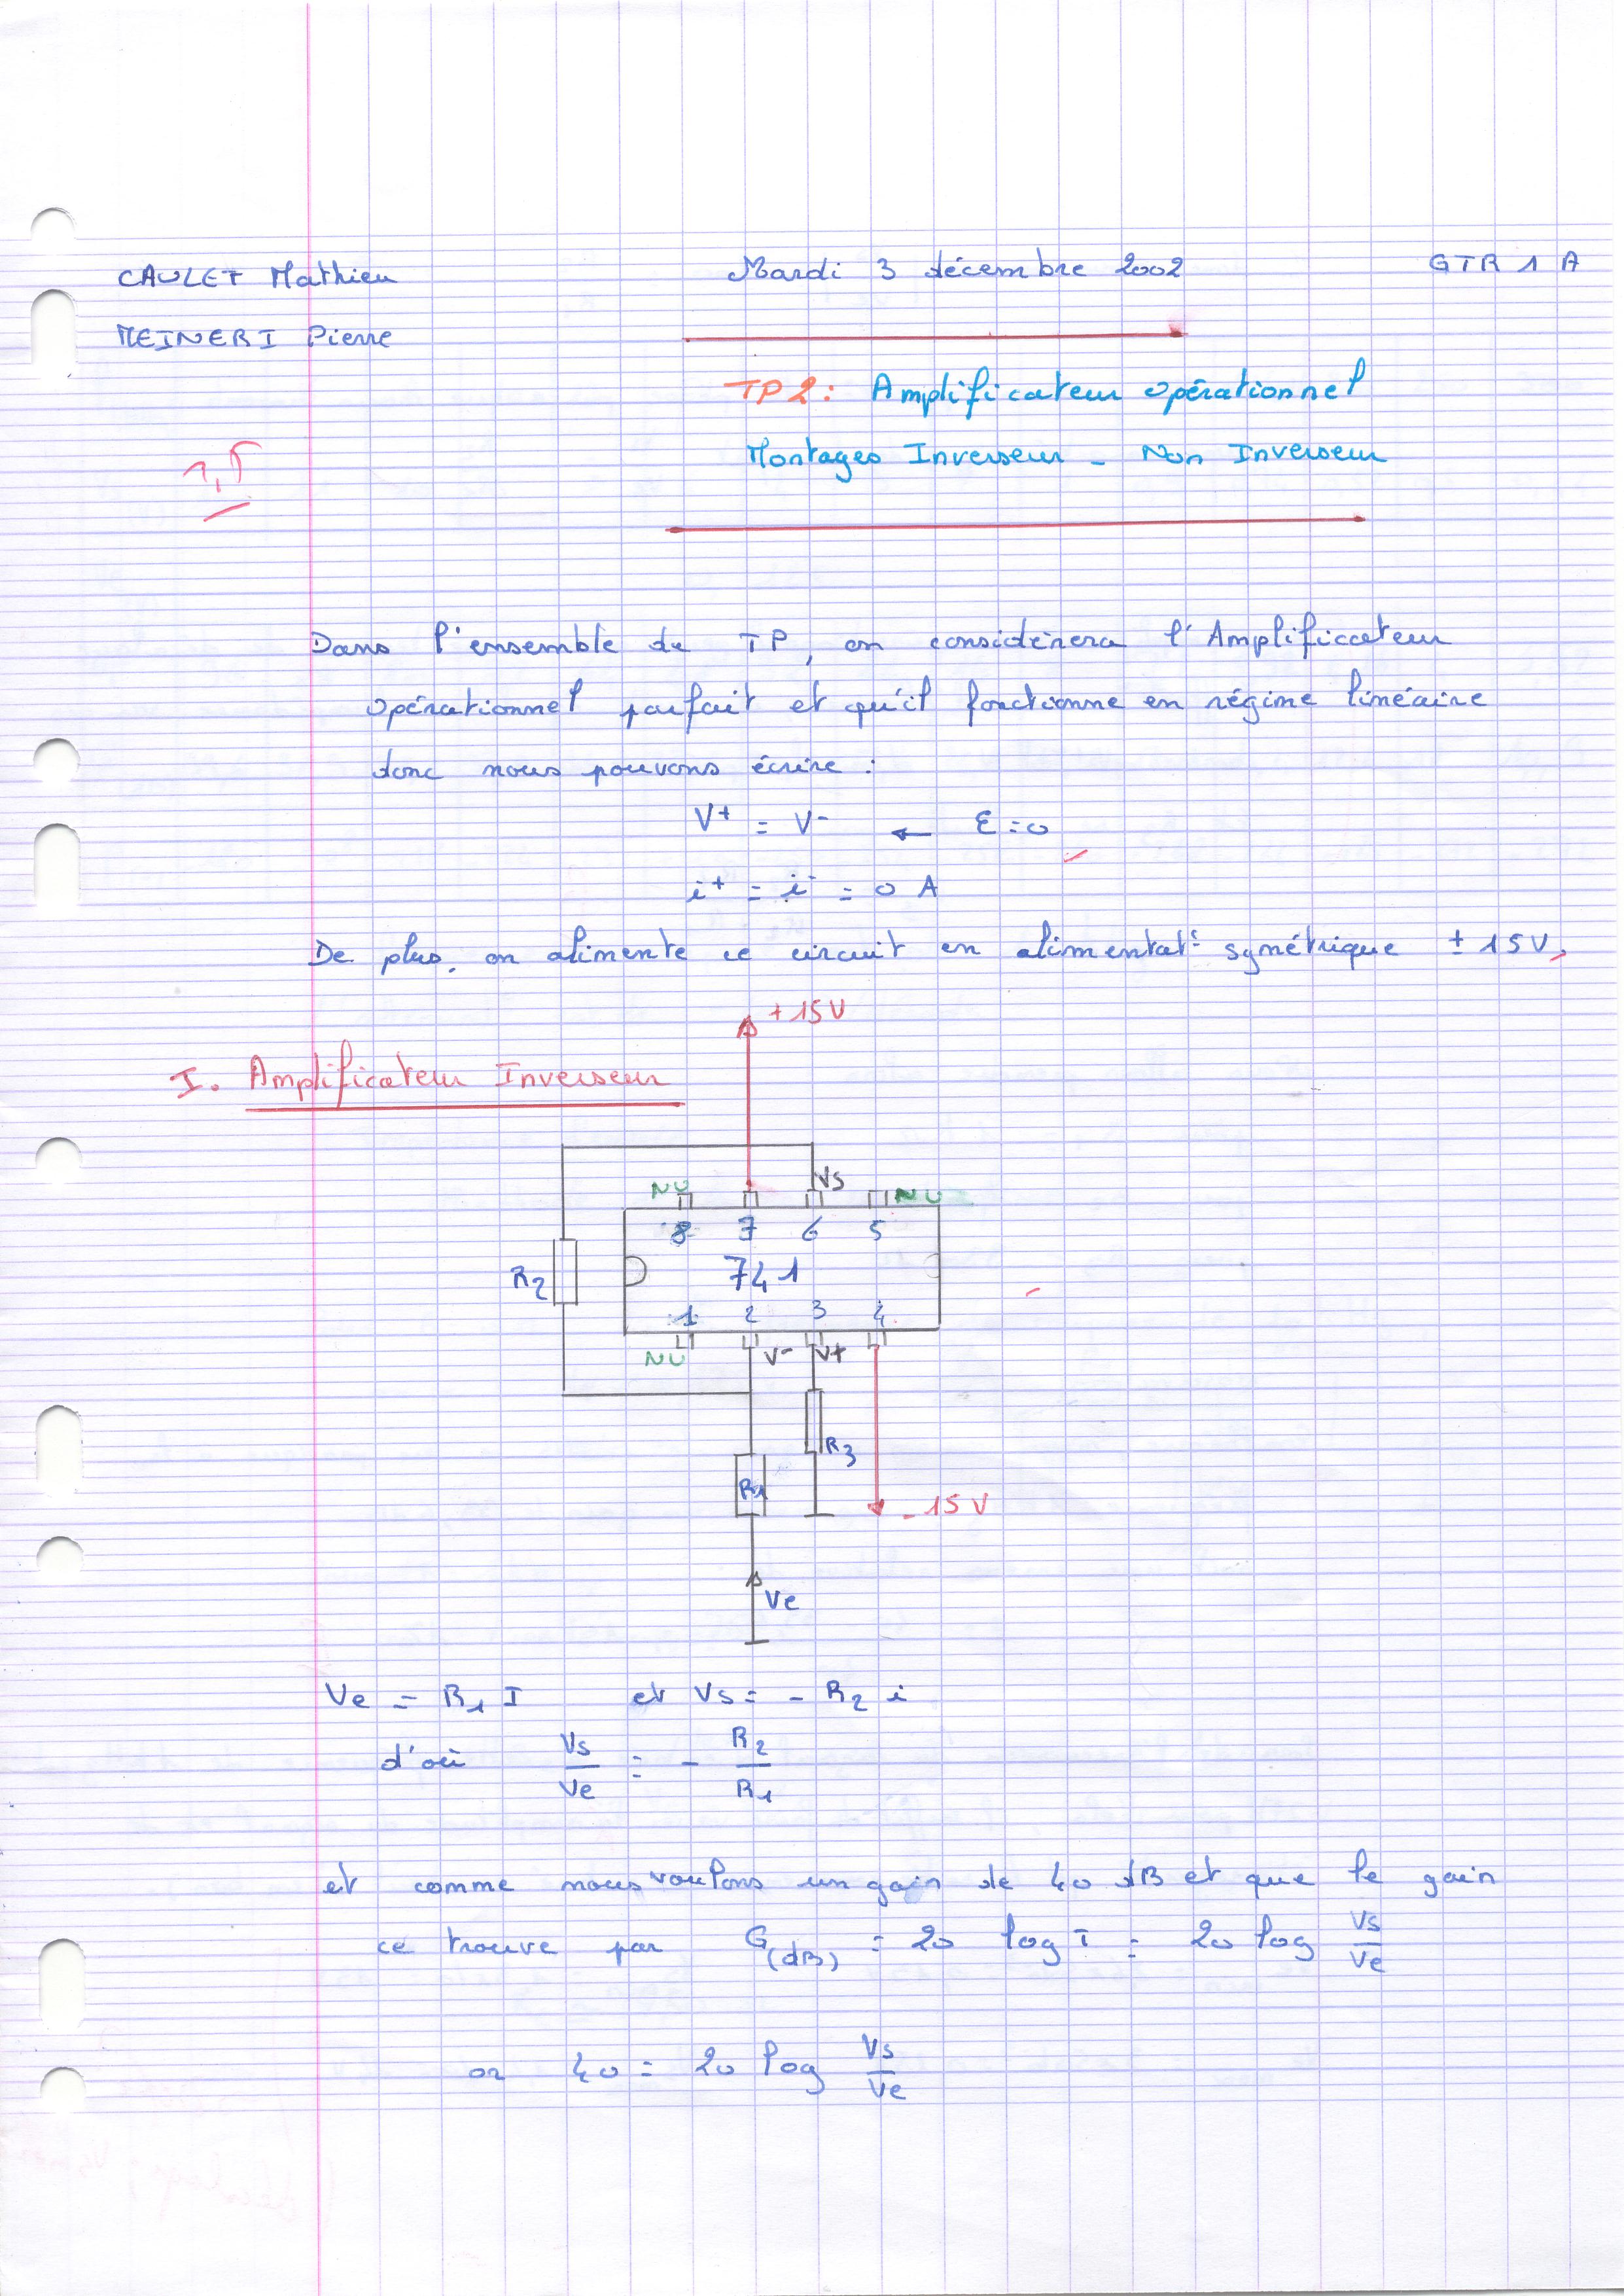 CAULET Mathieu
Mardi 3 décembre 2002
GTR 1 A
MEINERI Pierre
TP2: Amplificateur opérationnel
Montages Inverseur - Non Inverseur
1,5
Dans l'ensemble du TP, on considèrera l'Amplificateur
opérationnel parfait et qu'il fonctionne en régime linéaire
donc nous pouvons écrire :
V+ = V- ← Ɛ = 0
i+ = i- = 0 A
De plus, on alimente ce circuit en alimentat° symétrique ± 15V,
+ 15V
I. Amplificateur Inverseur
VS
NU NU
8 7 6 5
R2 741
1 2 3 4
NU V- V+
R3
R1
- 15 V
Ve
Ve = R1 I et Vs = - R2 i
d'où Vs/Ve = - R2/R1
et comme nous voulons un gain de 40 dB et que le gain
ce trouve par G(dB) = 20 log T = 20 log Vs/Ve
or 40 = 20 log Vs/Ve